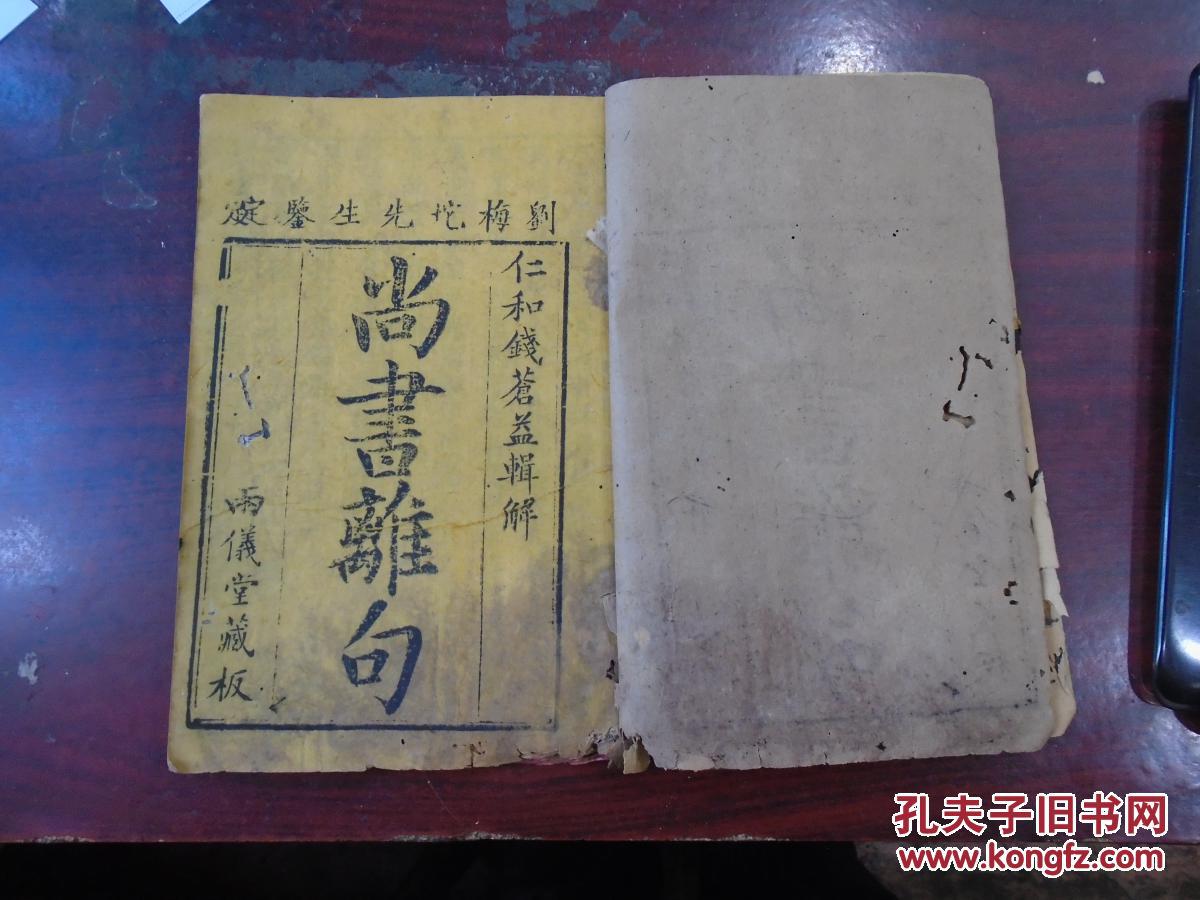 劉梅垞先生鑒定
仁和錢蒼益輯解
尚書離句
兩儀堂藏板
孔夫子旧书网
www.kongfz.com